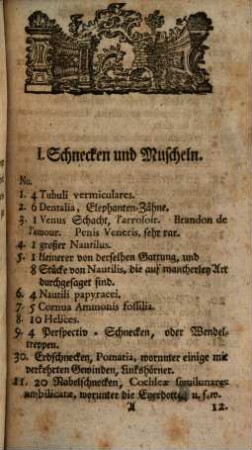 I. Schnecken und Muscheln.
No.
1. 4 Tubuli vermiculares.
2. 6 Dentalia, Elephanten-Zähne.
3. 1 Venus Schacht, l'arrosoir. Brandon de
l'amour. Penis Veneris, sehr rar.
4. 1 großer Nautilus.
5. 1 kleinerer von derselben Gattung, und
8 Stücke von Nautilis, die auf mancherley Art
durchgesaget sind.
6. 4 Nautili papyracei.
7. 5 Cornua Ammonis fossilia.
8. 10 Helices.
9. 4 Perspectiv-Schnecken, oder Wendel-
treppen.
30. Erdschnecken, Pomatia, worunter einige mit
verkehrten Gewinden, Linkshörner.
11. 20 Nabelschnecken, Cochleæ semilunares
umbilicatæ, worunter die Eyerdotter u. s. w.
A 12.